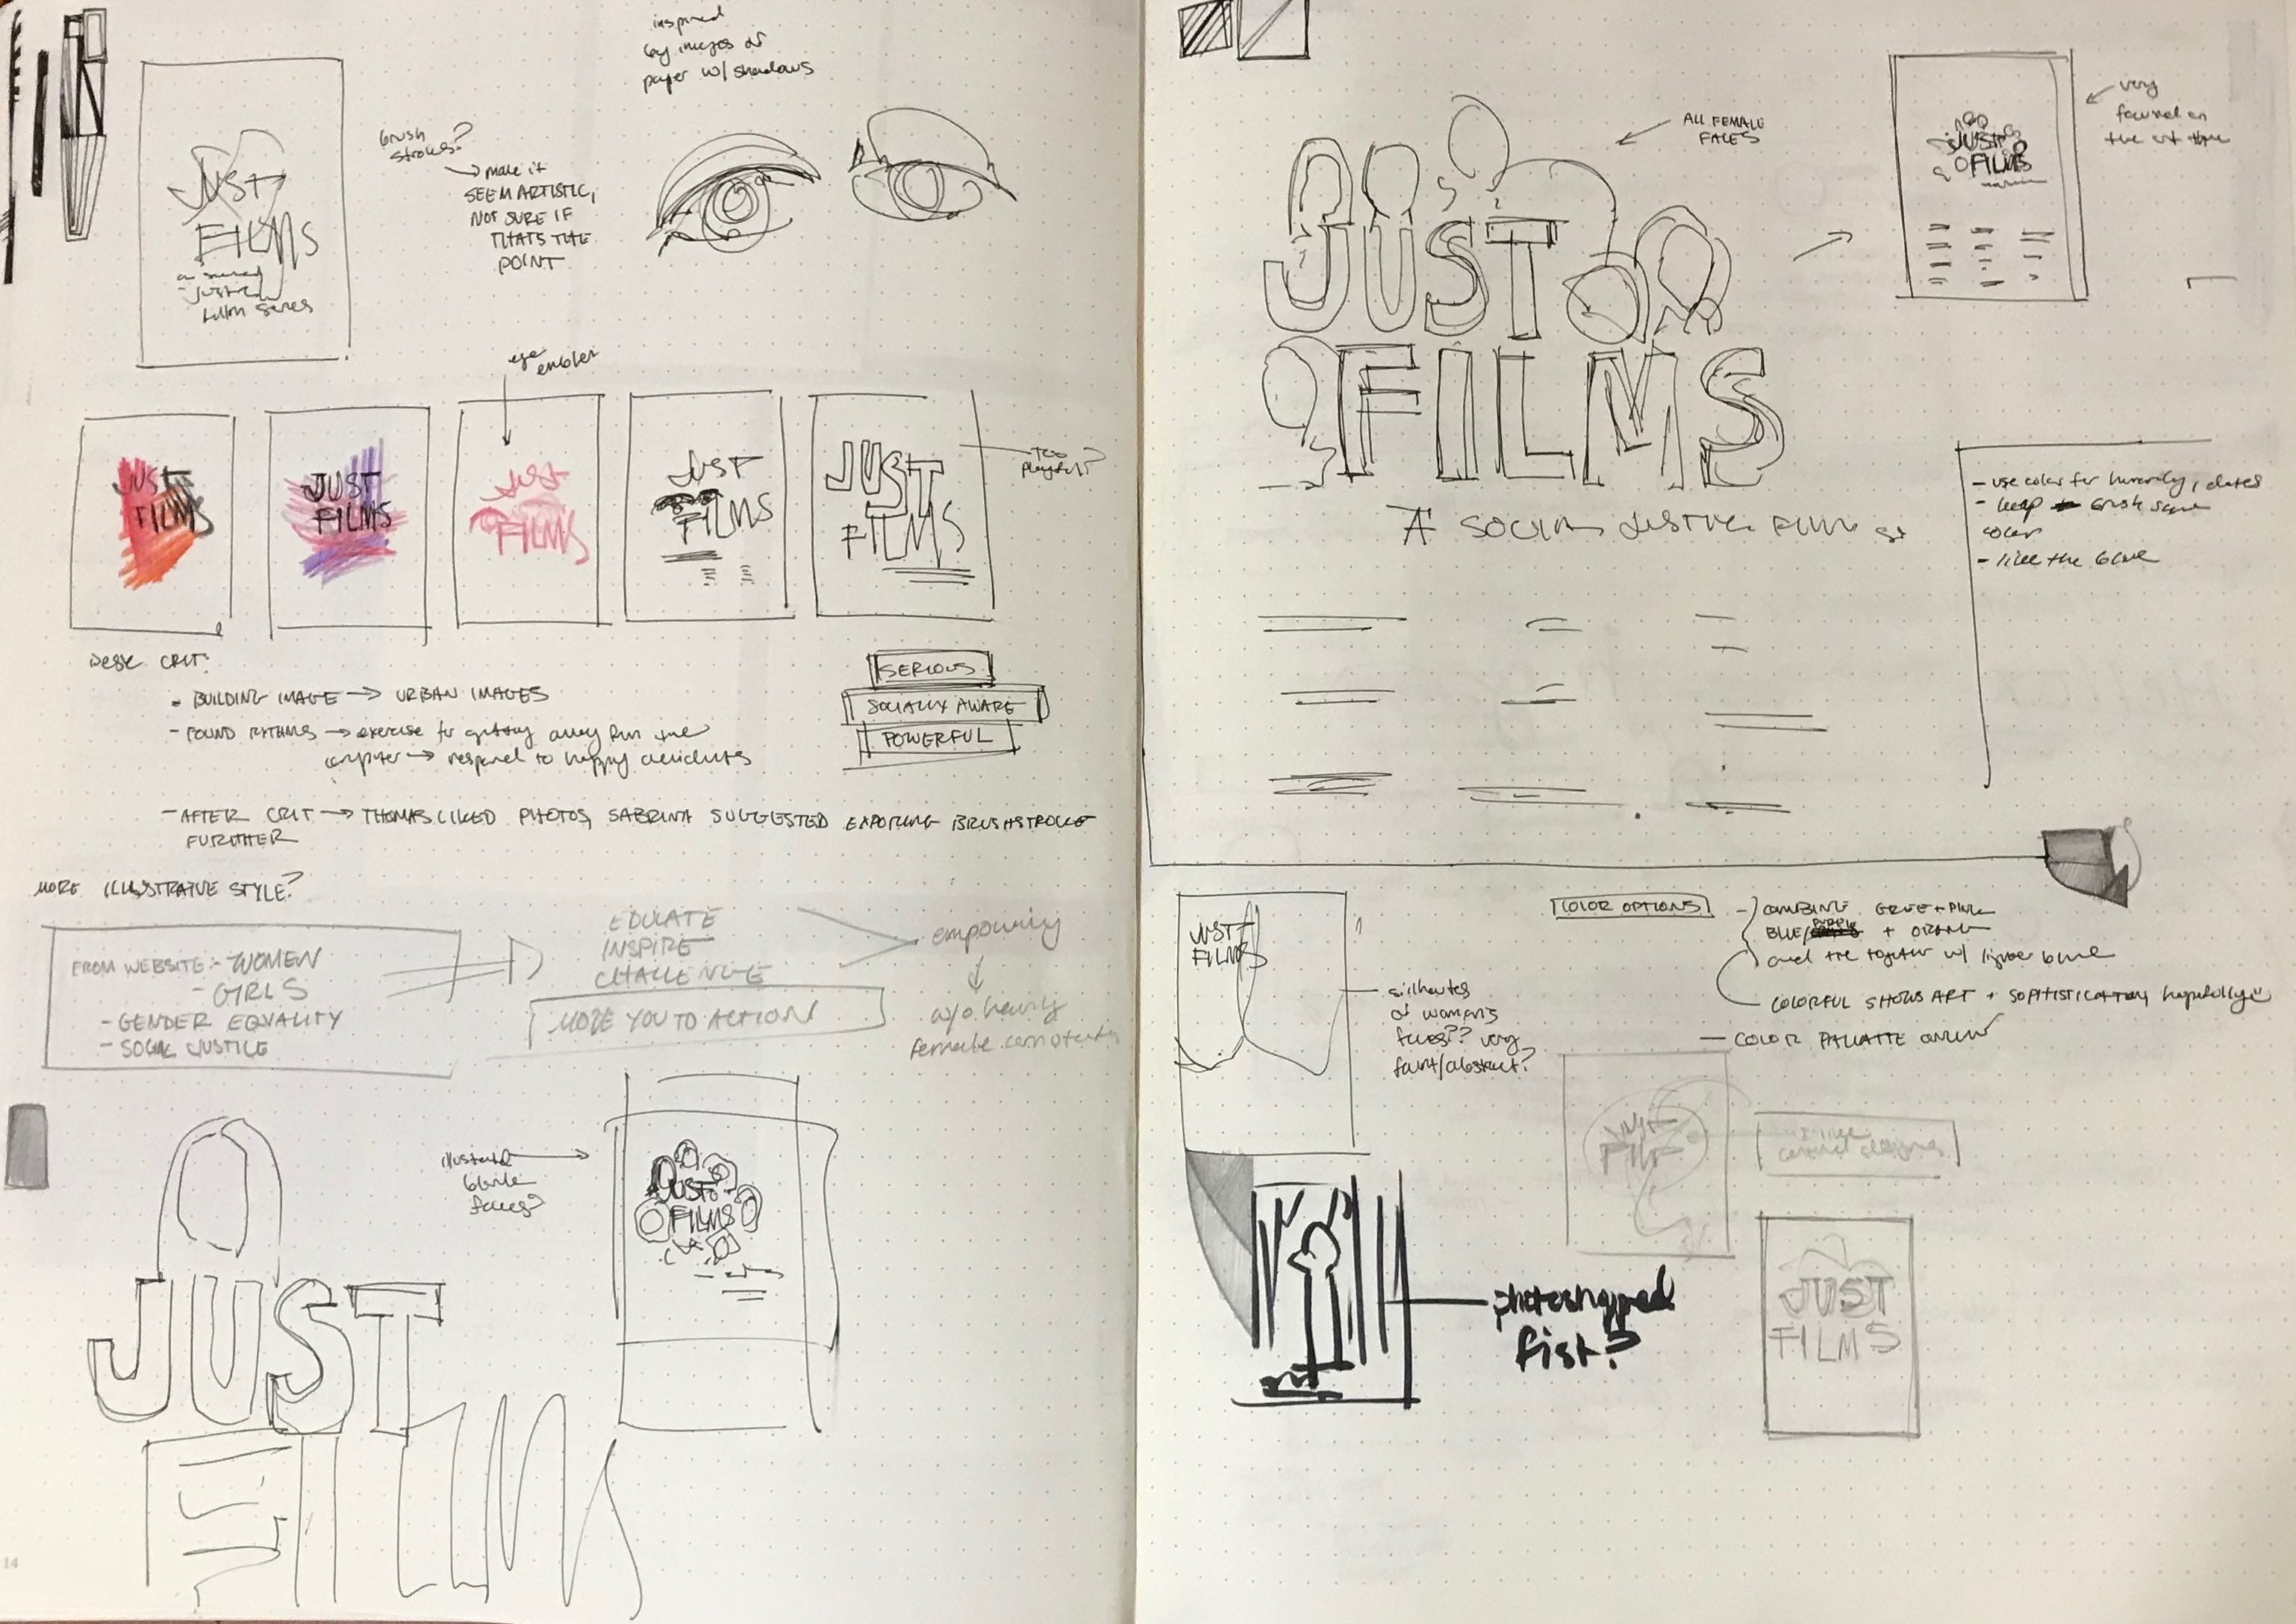 inspired
by images of
paper w/ shadows
JUST
FILMS
a social
justice
film series
brush
strokes?
make it
SEEM ARTISTIC,
NOT SURE IF
THATS THE
POINT
eye
JUST
FILMS
JUST
FILMS
JUST
FILMS
JUST
FILMS
JUST
FILMS
too
playful?
DESK CRIT:
- BUILDING IMAGE → URBAN IMAGES
- FOUND RYTHMS → exercise for getting away from the
computer → respond to happy accidents
SERIOUS
SOCIALLY AWARE
POWERFUL
- AFTER CRIT → THOMAS LIKED PHOTOS, SABRINA SUGGESTED EXPORING BRUSHSTROKE
FURTHER
MORE ILLUSTRATIVE STYLE?
FROM WEBSITE: - WOMEN
- GIRLS
- GENDER EQUALITY
- SOCIAL JUSTICE
EDUCATE
INSPIRE
CHALLENGE
MOVE YOU TO ACTION
empowering
w/o heavily
female
faces?
JUST
FILMS
JUST
FILM
14
ALL FEMALE
FACES
JUST
FILMS
A SOCIAL JUSTICE FILM
JUST
FILMS
very
focused on
the
- use color for hierarchy, dates
- keep brush same
color
- like the blue
JUST
FILMS
silhoutes
of womens
faces?? very
faint/abstract?
COLOR OPTIONS
- COMBINE + PINK
BLUE/ + ORANGE
and tie together w/ lighter blue
COLORFUL SHOWS ART + SOPHISTICATION, hopefully
- COLOR PALLATTE ONLINE
JUST
FILM
photoshopped
fist?
JUST
FILMS